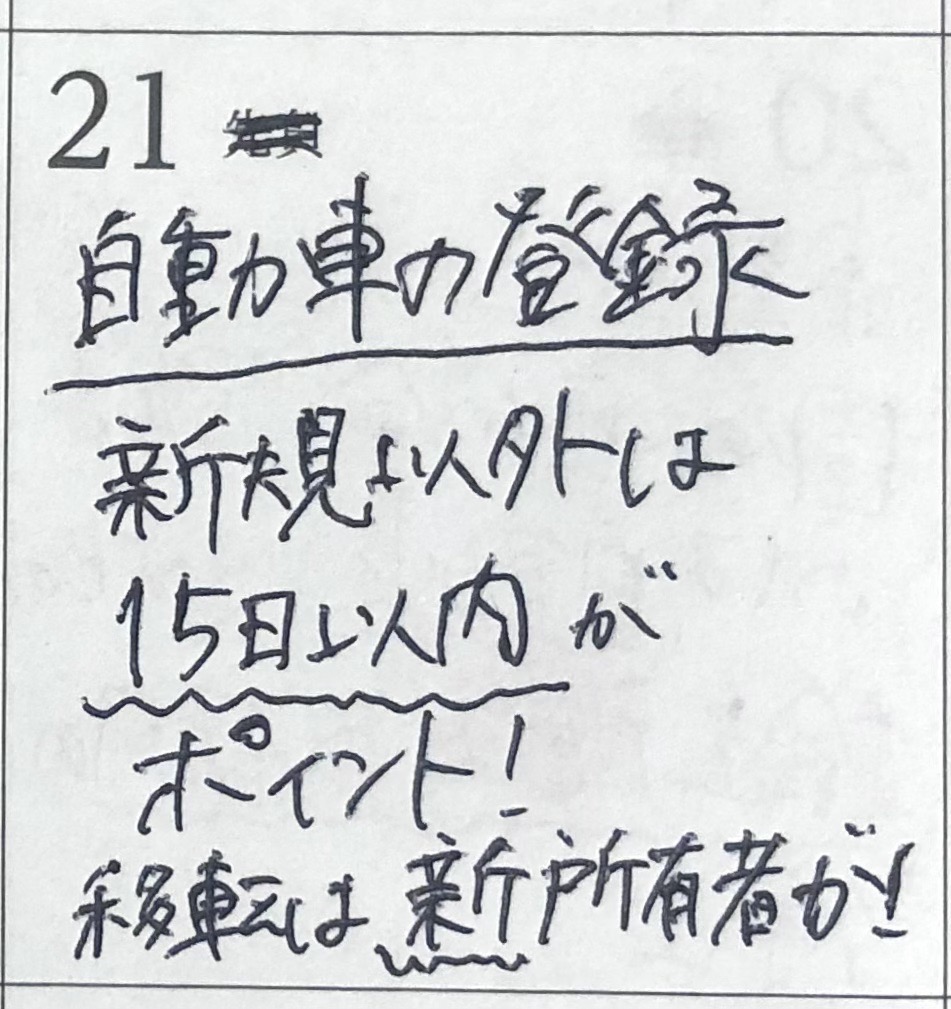 21
自動車の登録
新規以外は
15日以内が
ポイント!
移転は新所有者が!